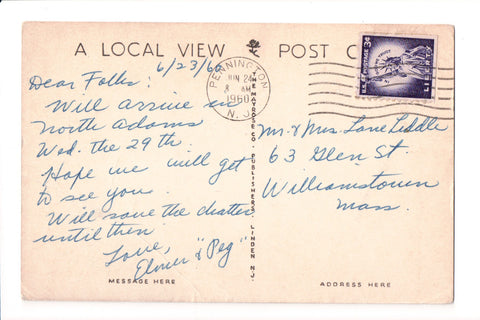 A LOCAL VIEW POST C
6/23/60
Dear Folks:
Will arrive in
North Adams
Wed. the 29th.
Hope we will get
to see you.
Will save the chatter
until then
Love,
Elmer & "Peg"
MESSAGE HERE
THE MAYROSE CO. PUBLISHERS LINDEN N.J.
PENNINGTON
JUN 24
8 AM
1960
N.J.
U.S. POSTAGE 3¢
LIBERTY
Mr. & Mrs. Lane Liddle
63 Glen St.
Williamstown
Mass.
ADDRESS HERE